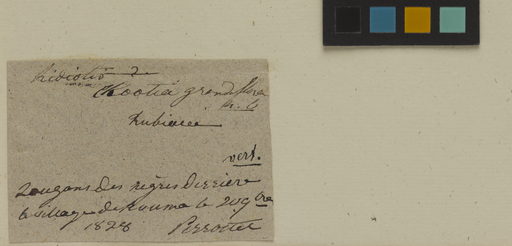 Kootia grandiflora
n. G
Rubiaceae
vert.
Lougans des nègres derrière
le village de Kouma le 20 9bre
1828 Perrottet